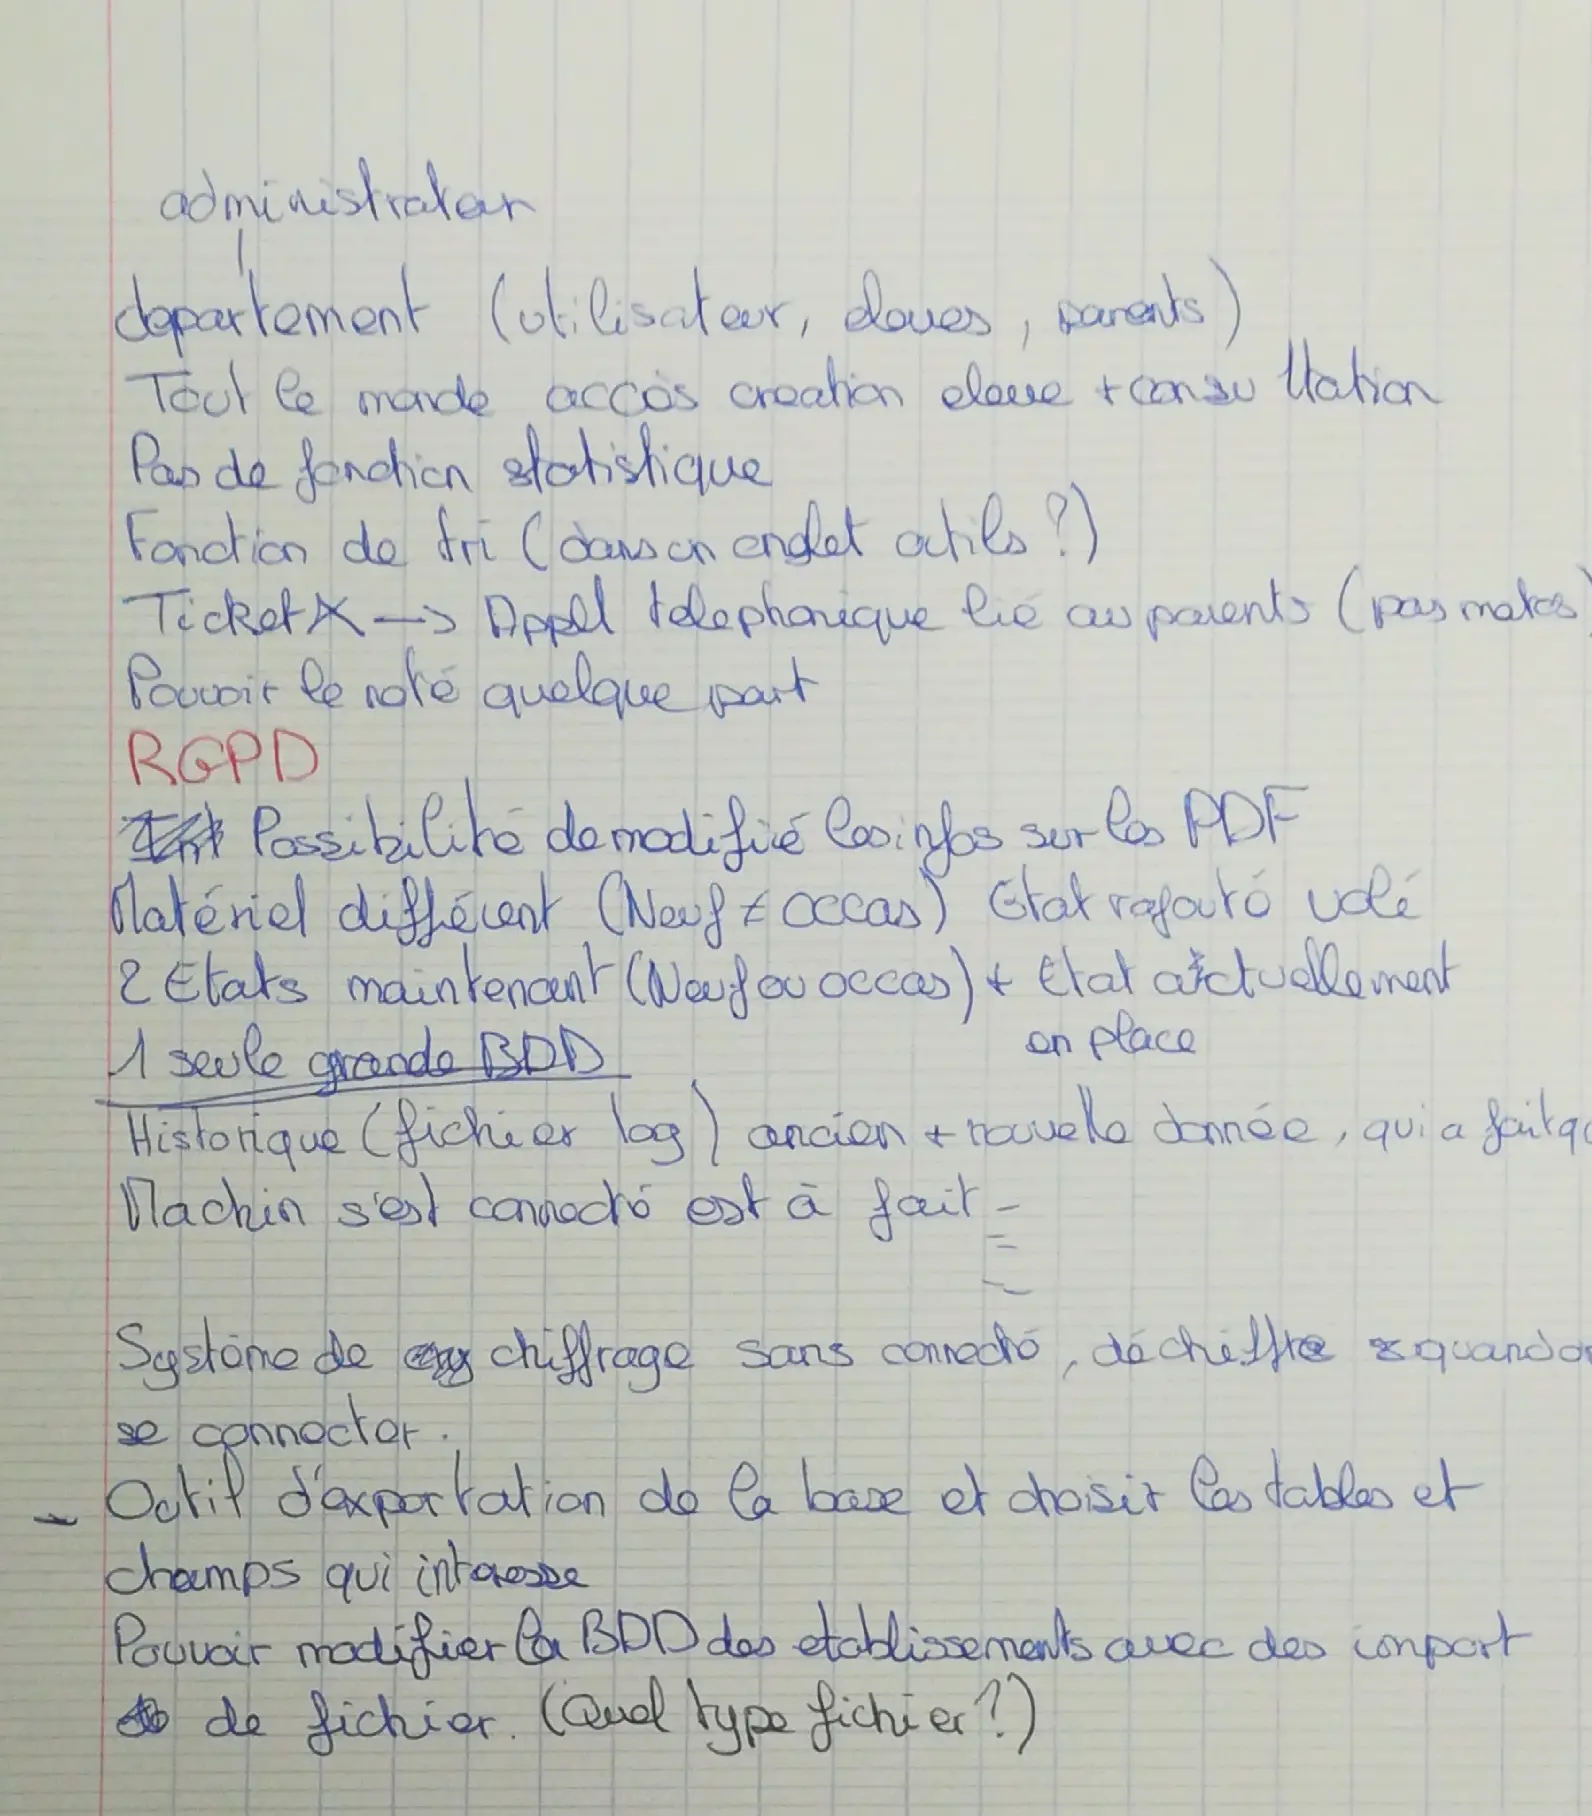 administrateur
departement (utilisateur, eleves, parents)
Tout le monde accès creation eleve + consultation
Pas de fonction statistique
Fonction de tri (dans un onglet outils ?)
Ticket X → Appel telephonique lié au parents (pas matos)
Pouvoir le noté quelque part
RGPD
Possibilité de modifié les infos sur les PDF
Matériel différent (Neuf ≠ occas) Etat rajouté volé
2 Etats maintenant (Neuf ou occas) + Etat actuellement
en place
1 seule grande BDD
Historique (fichier log) ancien + nouvelle donnée, qui a fait
Machin s'est connecté est à fait -
Système de chiffrage sans connecté, déchiffre
se connecter.
- Outil d'exportation de la base et choisir les tables et
champs qui interesse
Pouvoir modifier la BDD des etablissements avec des import
de fichier. (Quel type fichier ?)